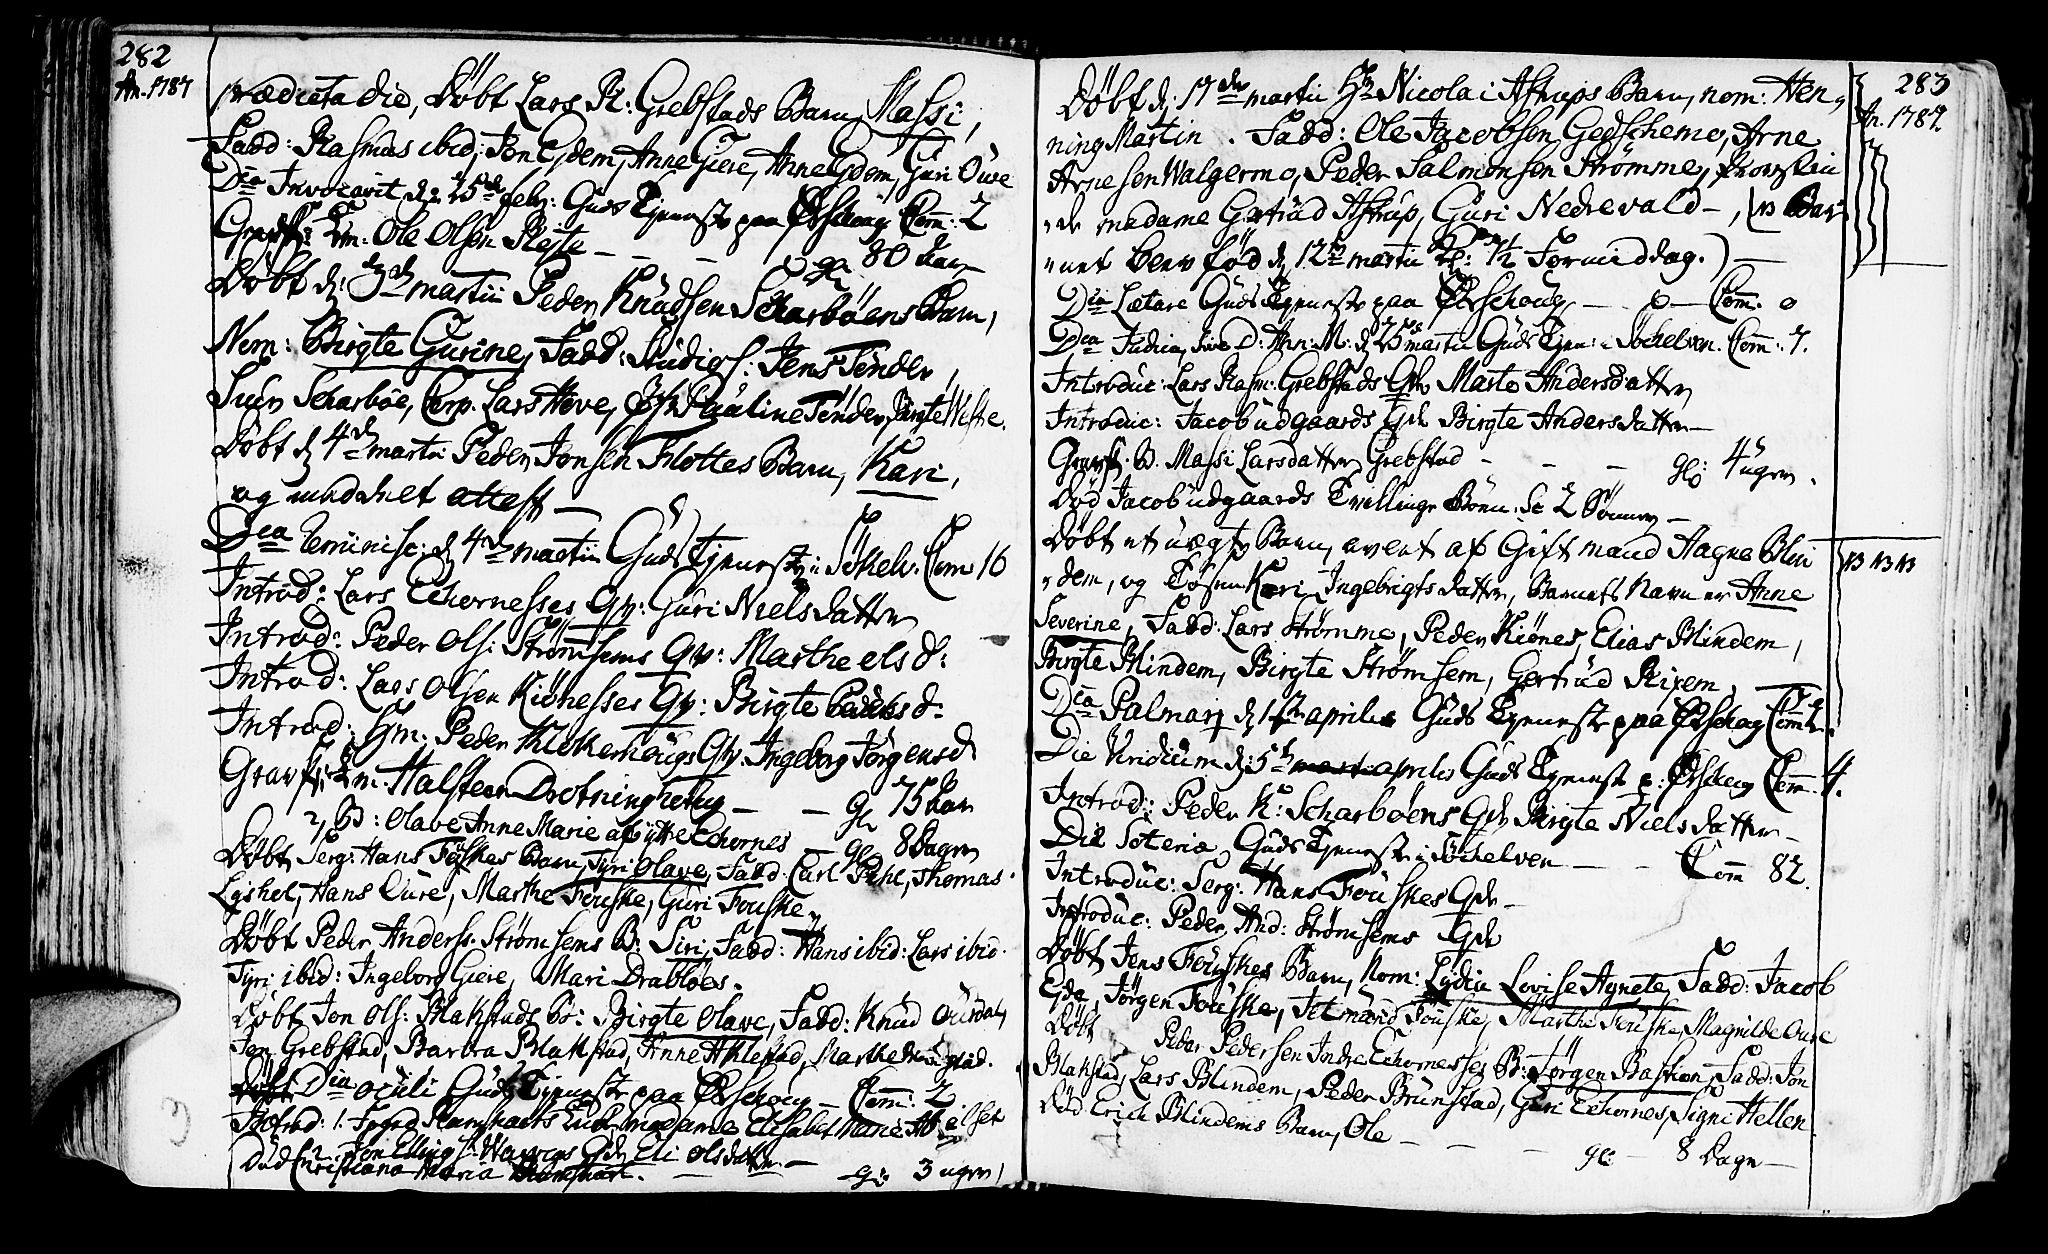 282
An. 1787
prædicta die, Döbt Lars R: Grebstads Barn, Massi,
Fadd: Rasmus ibid: Jon Gjdem, Anne Giere, Anne Gjdem, Guri Oure
Dca Invocavit d: 25de febr: Guds Tjeneste paa Ørschoug Com: 2
Gravf: Em: Ole Olsen Rejte — — — gl 80 Aar
Döbt d: 3de martii Peder Knudsen Scharböens Barn,
Nom: Birgte Gurine, Fadd: Studios: Jens Tönder,
Siver Scharböe, Corp. Lars Hove, Jfr Pauline Tönder, Birgte Weste.
Döbt d 4de martii Peder Jonsen Flottes Barn, Kari,
og meddeelt attest —
Dca Reminisc: d 4de martii Guds Tjeneste i Sökelv. Com 16
Introd: Lars Echornesses Qv: Guri Nielsdatter
Introd: Peder Ols: Strømsems Qv: Marthe Elsd:
Introd: Lars Olsen Kiönesses Qv: Birgte Pedersd:
Introd: Hm. Peder Klokerhougs Qv. Ingeborg Jörgensd
Gravf: Em: Halsteen Drotninghoug — — gl 75 Aar
2, B: Olave Anne Marie af ytre Echornes — gl 8 Dager
Döbt Serg: Hans Fouskes Barn, Tyri Olave, Fadd: Carl Pihl, Thomas
Lyshol, Hans Oure, Marthe Fouske, Guri Fouske.
Döbt Peder Anderss. Strømsems B: Siri, Fadd: Hans ibid: Lars ibid.
Tyri ibid: Ingeborg Giere, Mari Drabløes.
Döbt Jon Ols: Blakstads B: Birgte Olave, Fadd: Knud Oursdal,
Jon Grebstad, Barbra Blakstad, Anne Aklestad, Marthe
Dca Oculi Guds Tjeneste paa Ørschoug — Com: 2
Introd: 1. madame Elisabet Marie
2. Jon Ellings: Qv Eli Olsdatter —
Död Christiana Maria — gl: 3 uger,
283
An. 1787.
Döbt d: 17de martii Hr Nicolai Astrups Barn, nom: Hen-
ning Martin. Fadd: Ole Jacobsen Gedschemo, Arne
Arnesen Walgermo, Peder Salmonsen Strömme, Provstin
-de madame Gertrud Astrup, Guri Nedrevald —, (NB Bar-
net blev föd d 12te martii Kl: ½ Formiddag.) —
Dca Lætare Guds Tjeneste paa Ørschoug — 0 — Com: 0
Dca Judica, sive D: An: M: d 25de martii Guds Tjen: i Söchelven. Com: 7.
Introduc: Lars Rasm: Grebstads Qv Marte Andersdatter
Introduc: Jacob Udgaards Qv Birgte Andersdatter —
Gravf: B. Massi Larsdatter Grebstad — — — gl: 4 uger.
Död Jacob Udgaards Tvillinge Börn: Sc 2 Sönner —
Döbt et uægte Barn, avlet af Gift mand Aagne Blin-
-dem, og Tösen Kari Ingebrigtsdatter, Barnets Navn er Anne
NB NB NB
Severine, Fadd: Lars Strömme, Peder Kiönes, Elias Blindem,
Birgte Blindem, Birgte Strømsem, Gertrud Rixem.
Dca Palmar: d 1ste aprilis Guds Tjeneste paa Ørschoug Com:
Die Viridium d: 5te aprilis Guds Tjeneste p: Ørschoug Com: 4.
Introd: Peder K: Scharböens Qv Birgte Nielsdatter —
Die Soteriæ Guds Tjeneste i Söchelven — — Com 82.
Introduc: Serg: Hans Fouskes Qv —
Introduc: Peder And: Strømsems Qv
Döbt Jens Fouskes Barn, Nom: Lydia Lovise Agnete, Fadd: Jacob
Gjde, Jörgen Fouske, Jetmund Fouske, Marthe Fouske, Magnilde Oure
Döbt Peder Pedersen Indre Echornesses B: Jörgen Bastian, Fadd: Jon
Blakstad, Lars Blindem, Peder Brunstad, Guri Echornes, Signi Hellen
Död Erich Blindems Barn, Ole — — — gl: — 8 Dage —